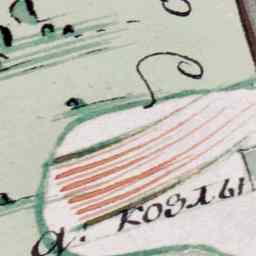 а: козлы